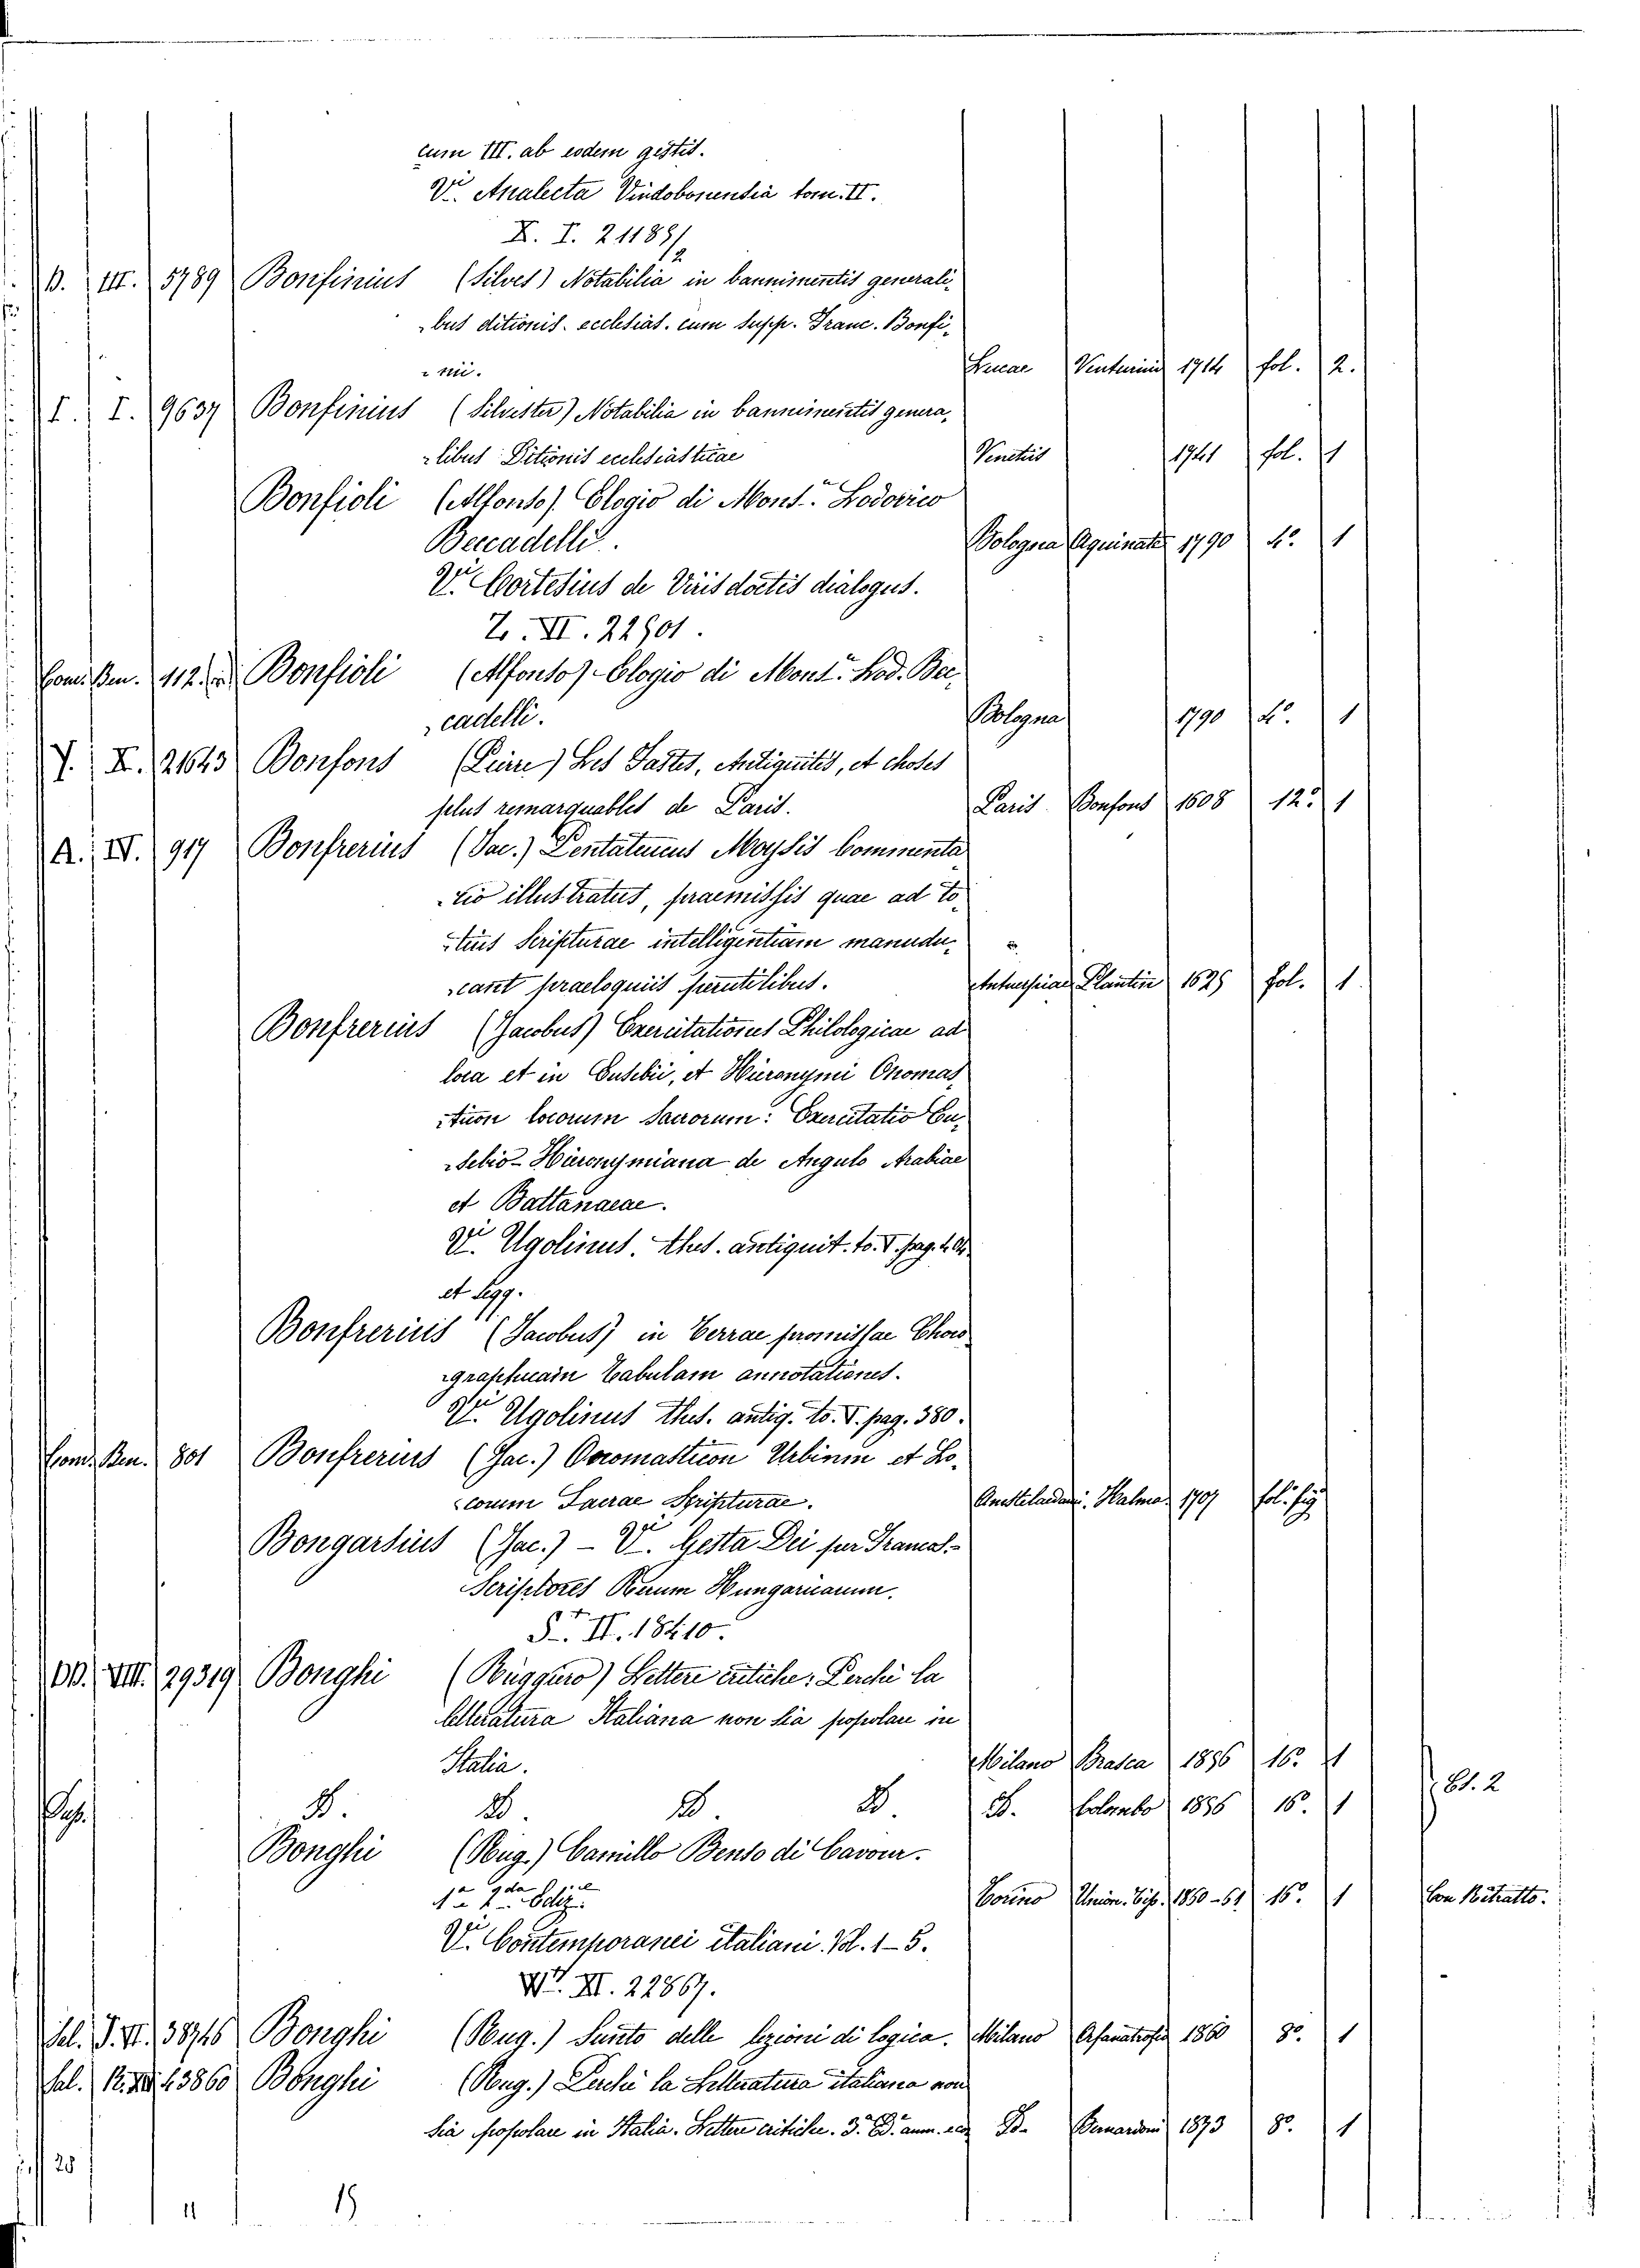 cum III. ab eodem gestis.
V.i Analecta Vindobonensia tom. II.
X. I. 21188/2
B. III. 5789 Bonfinius (Silves) Notabilia in bannimentis generali-
bus ditionis. ecclesias. cum supp. Franc. Bonfi-
nii. Lucae Venturini 1714 fol. 2.
I. I. 9637 Bonfinius (Silvester) Notabilia in bannimentis genera-
libus Ditionis ecclesiasticae Venetiis 1741 fol. 1
Bonfioli (Alfonso) Elogio di Mons.r Lodovico
Beccadelli. Bologna Aquinate 1790 4.o 1
V.i Cortesius de Viris doctis dialogus.
Z. VI. 22901.
Com. Ben. 112. Bonfioli (Alfonso) Elogio di Mons.r Lod. Bec-
cadelli. Bologna 1790 4.o 1
Y. X. 21643 Bonfons (Pierre) Les Fastes, Antiquités, et choses
plus remarquables de Paris. Paris Bonfons 1608 12.o 1
A. IV. 917 Bonfrerius (Jac.) Pentateucus Moysis Commenta-
tio illustratus, praemissis quae ad to-
tius Scripturae intelligentiam manudu-
cant praeloquiis perutilibus. Antuerpiae Plantin 1625 fol. 1
Bonfrerius (Jacobus) Exercitationes Philologicae ad
loca et in Eusebii, et Hieronymi Onomas-
ticon locorum Sacrorum: Exercitatio Eu-
sebio-Hieronymiana de Angulo Arabiae
et Battanaeae.
V.i Ugolinus. thes. antiquit. to. V. pag.
et segg.
Bonfrerius (Jacobus) in Terrae promissae Choro-
graphicain Tabulam annotationes.
V.i Ugolinus thes. antiq. to. V. pag. 380.
Com. Ben. 801 Bonfrerius (Jac.) Onomasticon Urbium et Lo-
corum Sacrae Scripturae. Amstelaedami. Halma 1707 fol. fig
Bongarsius (Jac.) – V.i Gesta Dei per Francos.-
Scriptores Rerum Hungaricarum.
S.t II. 18410.
DD. VIII. 29319 Bonghi (Ruggero) Lettere critiche: Perchè la
letteratura Italiana non sia popolare in
Italia. Milano Brasca 1856 16.o 1
Pas. D. D. D. D. D. Colombo 1856 16. 1 Es. 2
Bonghi (Rug.) Camillo Benso di Cavour.
1.a 2.da Ediz. Torino Union. Tip. 1850-61 16.o 1 Con Ritratto.
V.i Contemporanei italiani. Vol. 1-5.
W.t XI. 22867.
Sel. T. VI. 38746 Bonghi (Rug.) Sunto delle lezioni di logica. Milano 1860 8.o 1
Sal. 43860 Bonghi (Rug.) Perchè la Letteratura italiana non
sia popolare in Italia. Lettere critiche. 3.a Ed. aum. D.o Bernardoni 1873 8.o 1
28
11 19